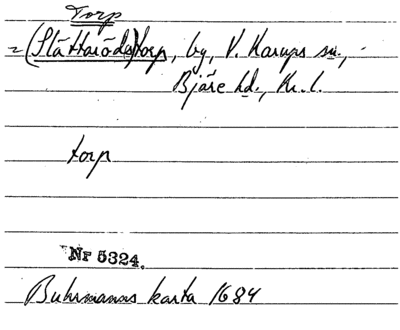 Torp
= (Slättaröds)torp, by, V. Karups sn.,
Bjäre hd., Kr. l.
torp
Nr 5324.
Buhrmanns karta 1684